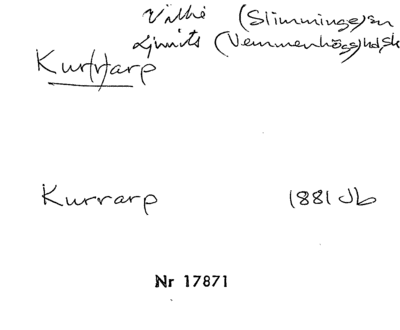 Villie (Slimminge) sn
Ljunits (Vemmenhögs) hd, Sk
Kur(r)arp
Kurrarp 1881 Jb
Nr 17871